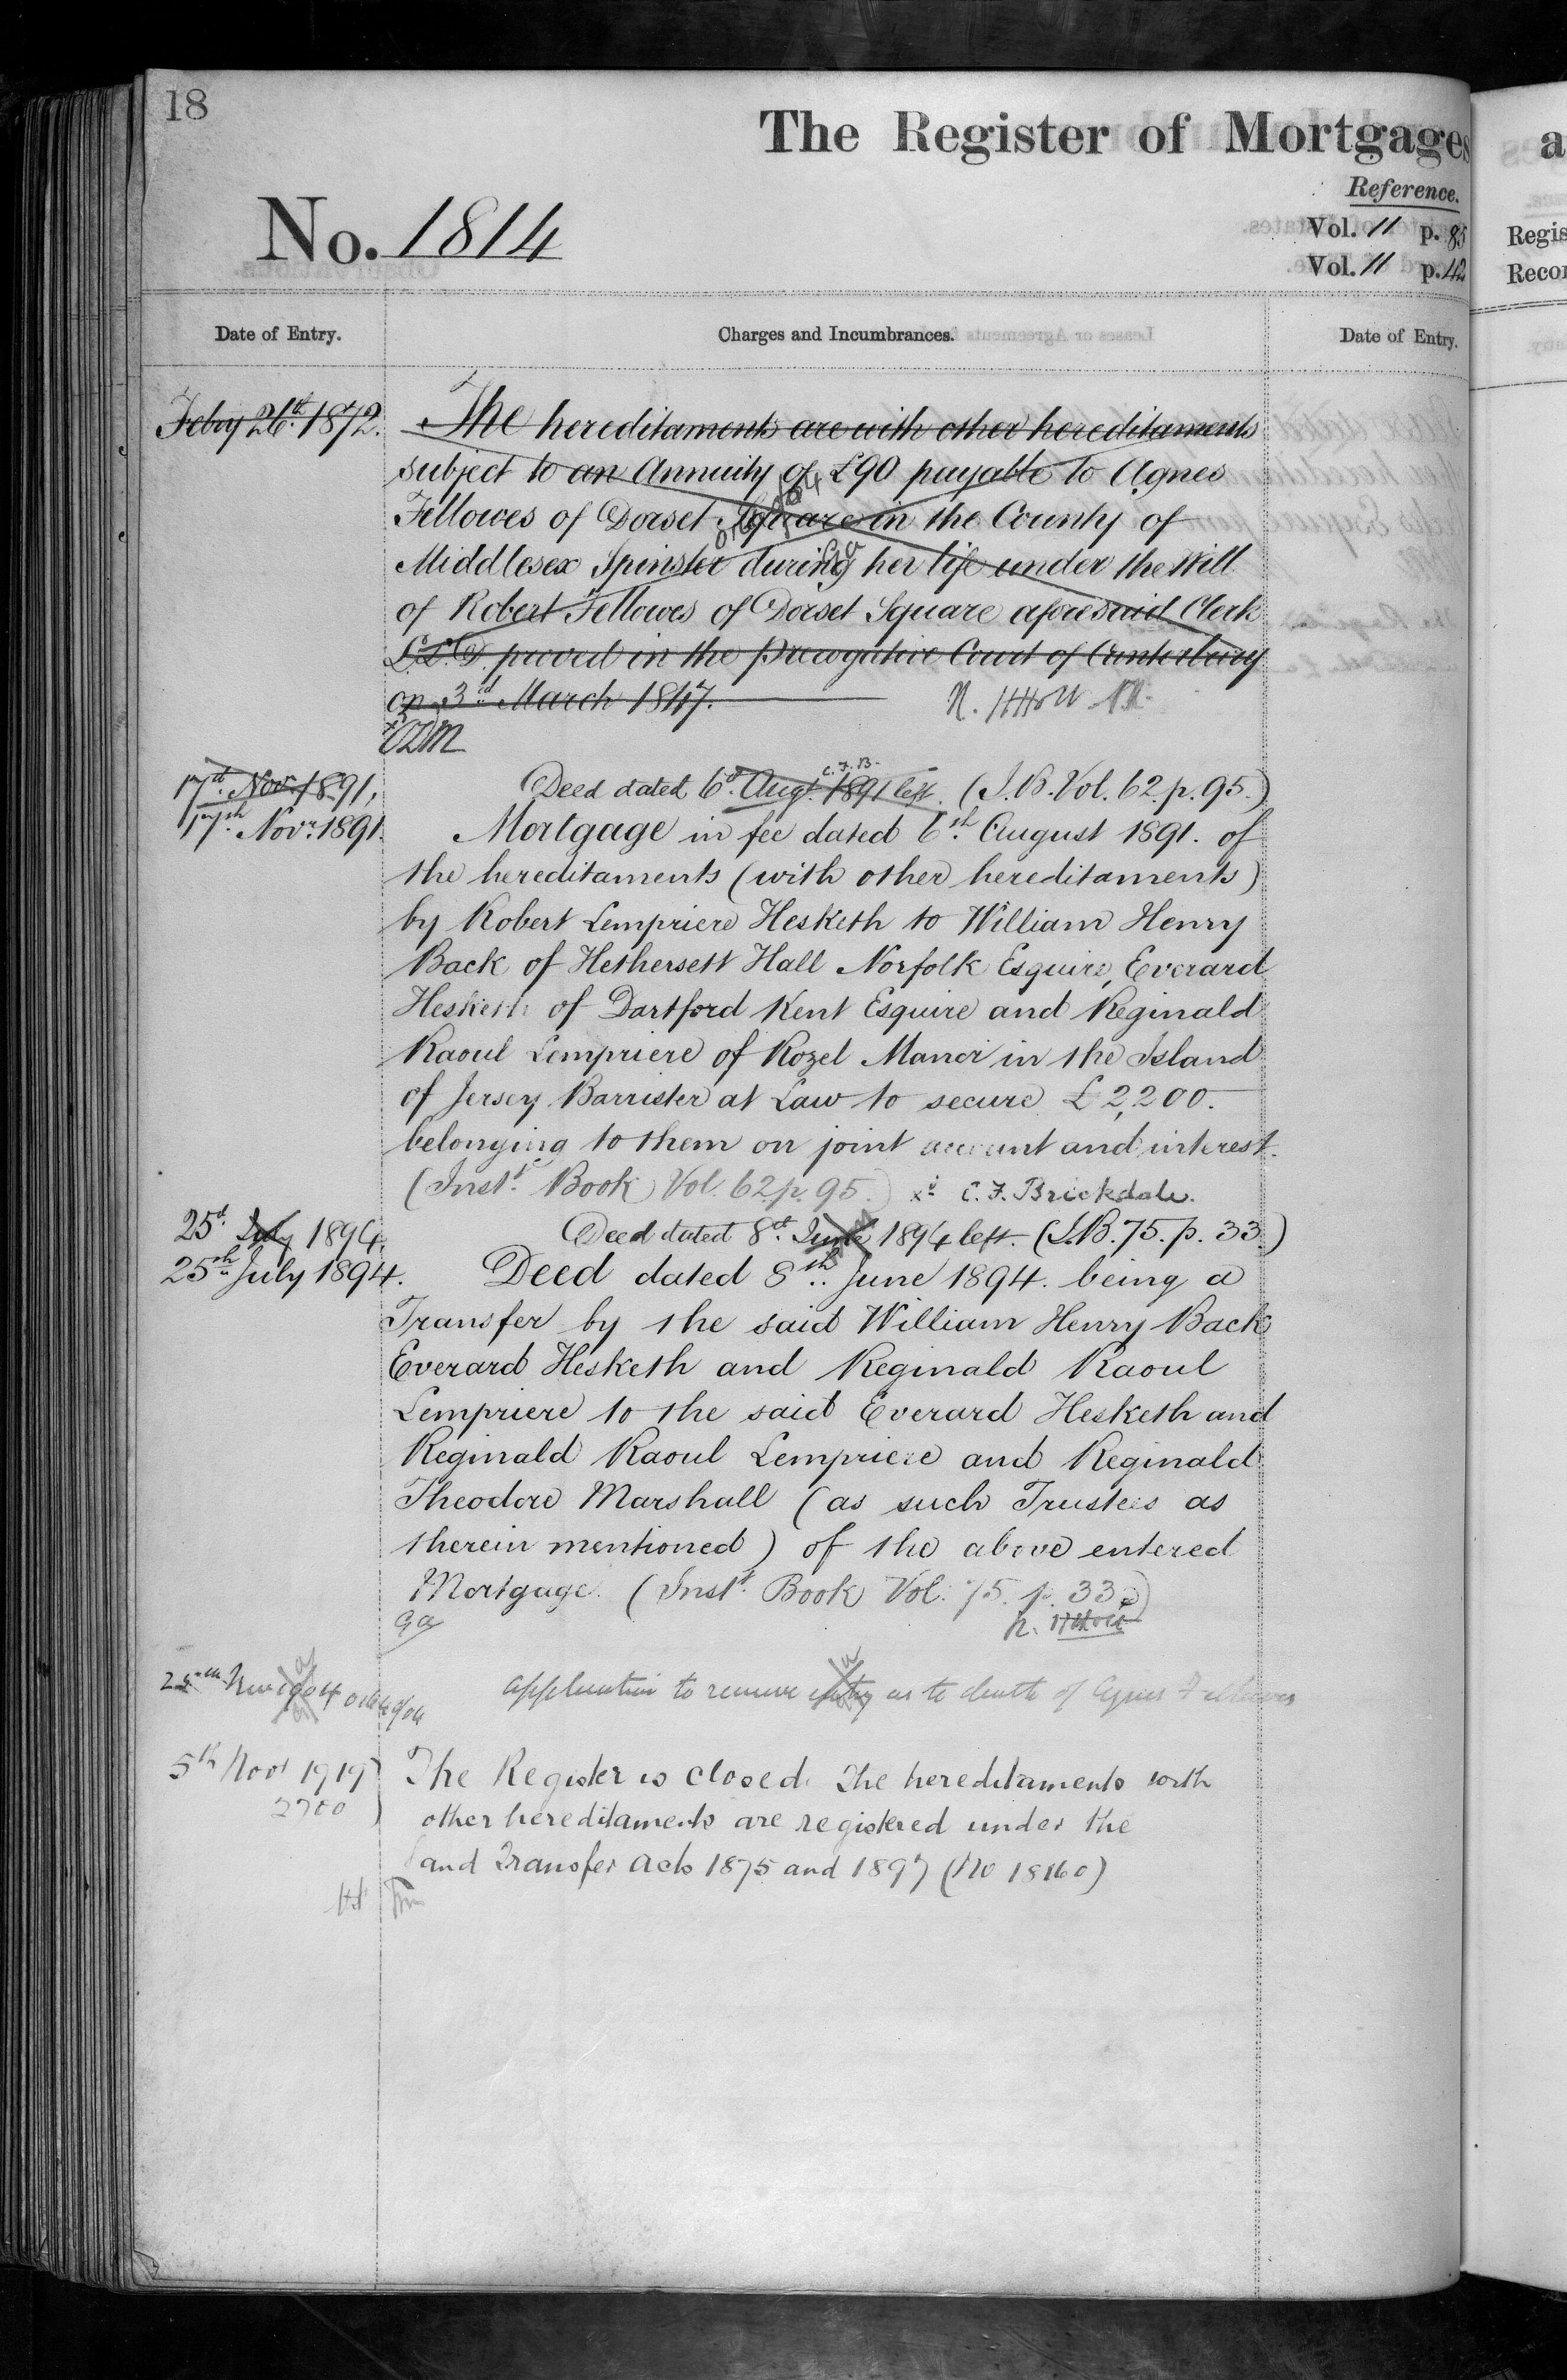 18
The Register of Mortgages
Reference.
No. 1814
Vol. 11 p. 85
Vol. 11 p. 42
a
Regis
Recor
Date of Entry.
Charges and Incumbrances.
Date of Entry.
Feby 26th 1872.
The hereditaments are with other hereditaments
subject to an Annuity of £90 payable to Agnes
Fellowes of Dorset Square in the County of
Middlesex Spinster during her life under the Will
of Robert Fellowes of Dorset Square aforesaid Clerk
L.L.D. proved in the Prerogative Court of Canterbury
on 3rd March 1847.
17th Novr 1891,
Deed dated 6th Augt. 1891 left. (I.B. Vol. 62. p. 95.)
C.F.B.
17th Novr. 1891.
Mortgage in fee dated 6th August 1891. of
the hereditaments (with other hereditaments)
by Robert Lempriere Hesketh to William Henry
Back of Hethersett Hall Norfolk Esquire, Everard
Hesketh of Dartford Kent Esquire and Reginald
Raoul Lempriere of Rozel Manor in the Island
of Jersey Barrister at Law to secure £2,200.
belonging to them on joint account and interest.
(Inst. Book Vol. 62. p. 95.) C.F. Brickdale.
25th July 1894.
Deed dated 8th June 1894 left. (I.B. 75. p. 33.)
25th July 1894.
Deed dated 8th June 1894. being a
Transfer by the said William Henry Back
Everard Hesketh and Reginald Raoul
Lempriere to the said Everard Hesketh and
Reginald Raoul Lempriere and Reginald
Theodore Marshall (as such Trustees as
therein mentioned) of the above entered
Mortgage. (Inst. Book Vol. 75. p. 33.)
application to remove entry as to death of Agnes Fellowes
5th Novr 1919
2700
The Register is closed. The hereditaments with
other hereditaments are registered under the
Land Transfer Acts 1875 and 1897 (No 18160)